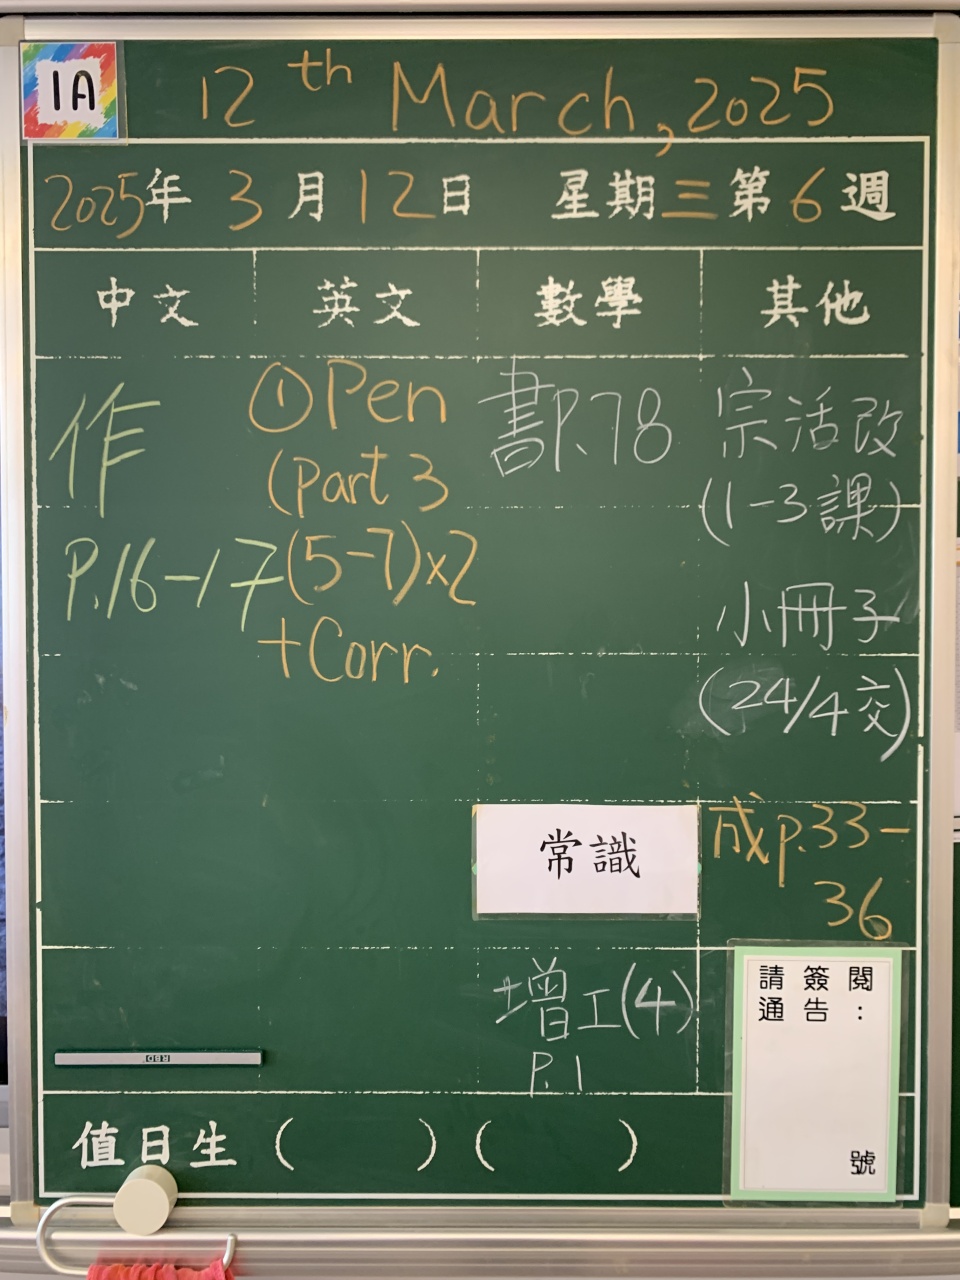 1A
12th March, 2025
2025年 3月12日 星期三 第6週
中文 英文 數學 其他
作
P.16-17
①Pen
(Part 3
(5-7)x2
+Corr.
書P.78
宗活改
(1-3課)
小冊子
(24/4交)
常識
成p.33-
36
增工(4)
P.1
請簽閱
通告：
號
值日生 ( ) ( )